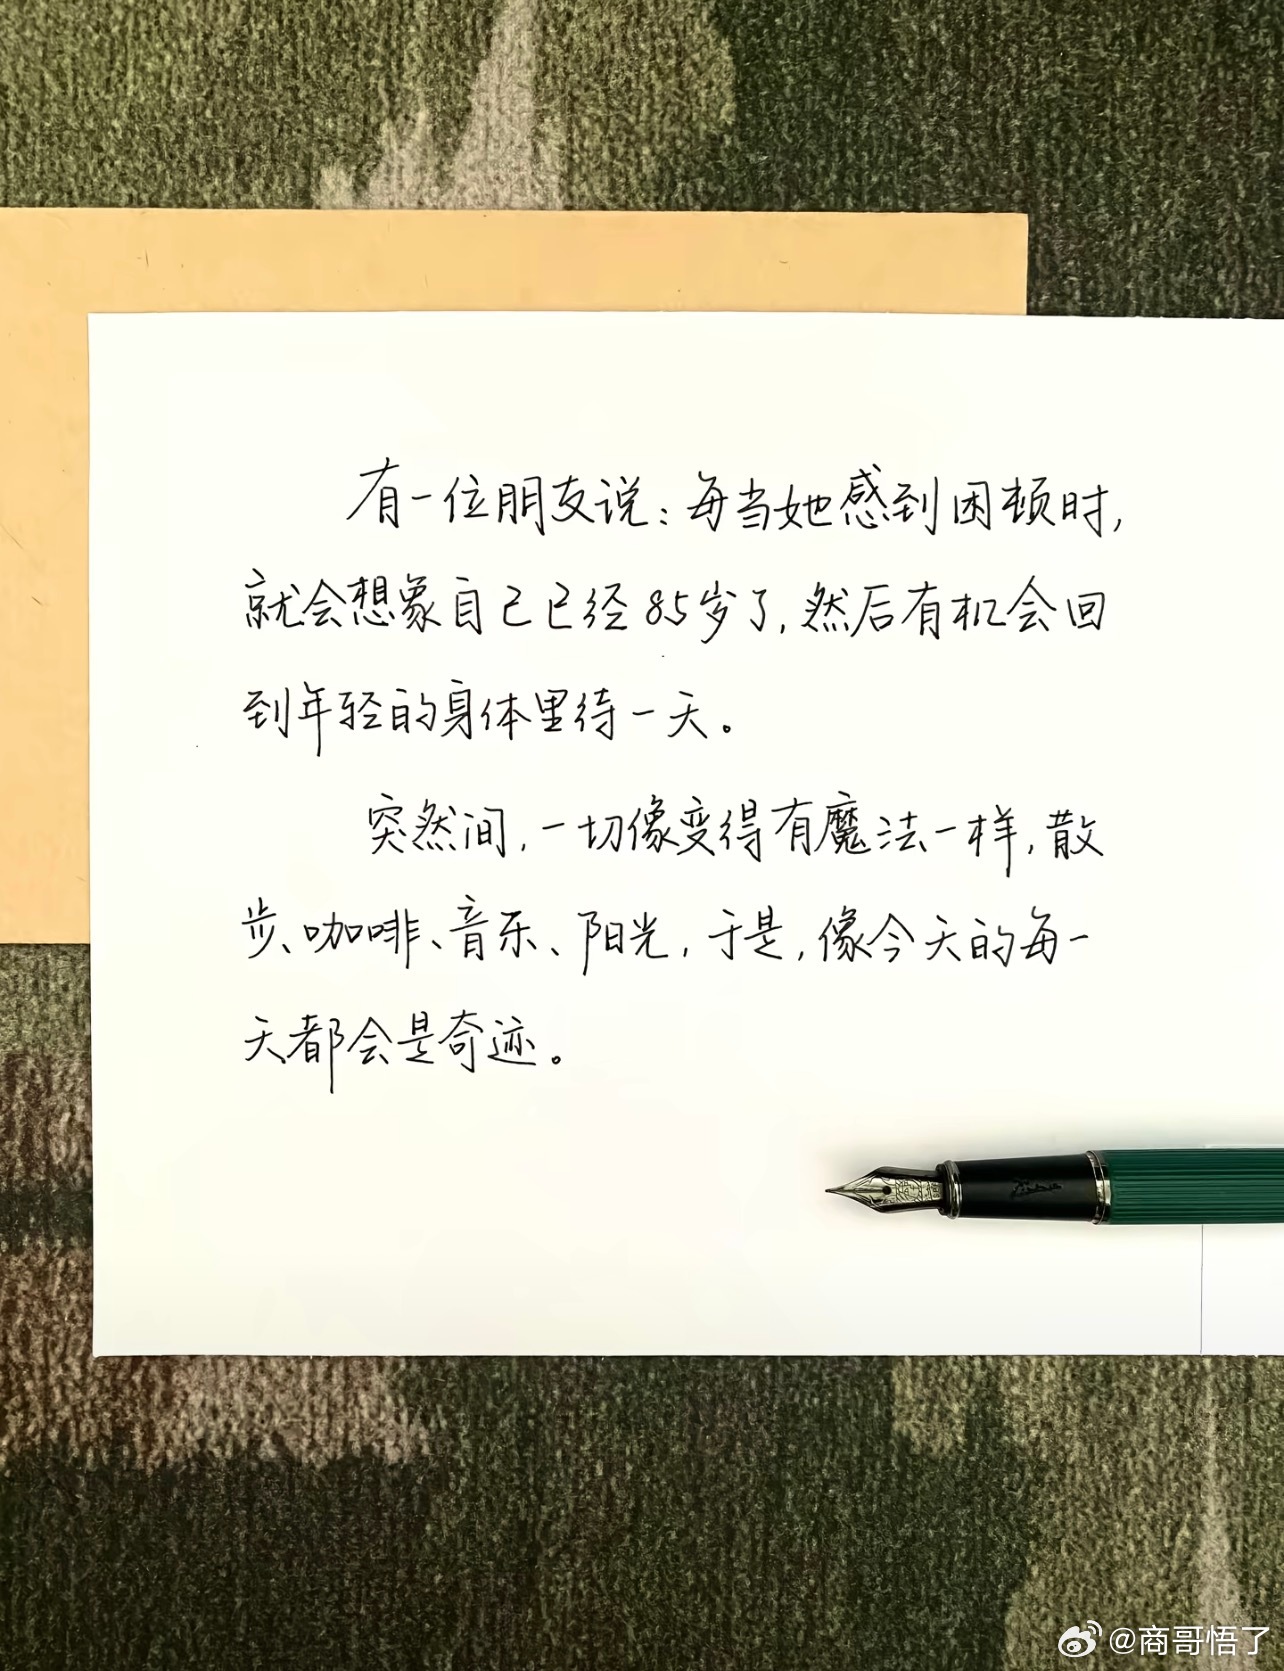 有一位朋友说：每当她感到困顿时，
就会想象自己已经85岁了，然后有机会回
到年轻的身体里待一天。
突然间，一切像变得有魔法一样，散
步、咖啡、音乐、阳光，于是，像今天的每一
天都会是奇迹。
@商哥悟了